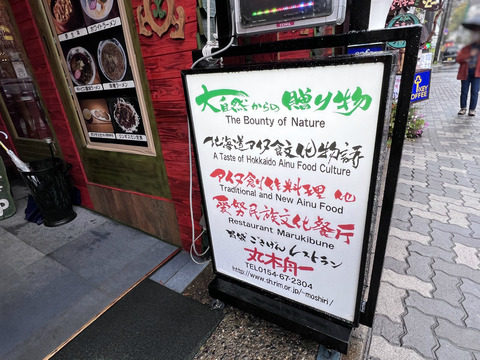 大自然からの贈り物
The Bounty of Nature
北海道アイヌ食文化物語
A Taste of Hokkaido Ainu Food Culture
アイヌ創作料理 他
Traditional and New Ainu Food
愛努民族文化餐厅
Restaurant Marukibune
ごきげんレストラン
丸木舟
TEL0154-67-2304
http://www.sh.rim.or.jp/~moshiri/
KEY
COFFEE